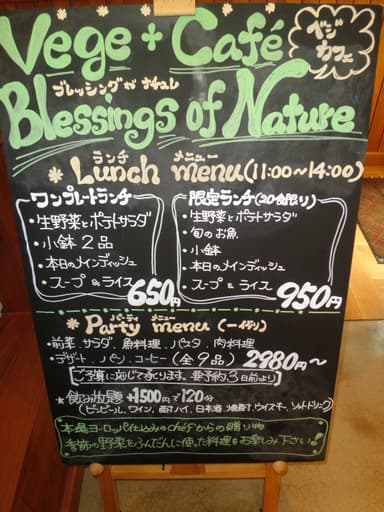 Vege + Café
ベジカフェ
ブレッシングオブ ナチュレ
Blessings of Nature
ランチ メニュー
* Lunch menu (11:00~14:00)
ワンプレートランチ
・生野菜とポテトサラダ
・小鉢2品
・本日のメインディッシュ
・スープ & ライス
650円
限定ランチ(20食限り)
・生野菜とポテトサラダ
・旬のお魚
・小鉢
・本日のメインディッシュ
・スープ & ライス
950円
パーティ メニュー
* Party menu (一例)
・前菜.サラダ.魚料理.パスタ.肉料理
・デザート.パン.コーヒー(全9品) 2980円~
(ご予算に応じて承ります。要予約3日前より)
* 飲み放題 +1500円で120分
(ビンビール,ワイン,酎ハイ,日本酒,焼酎,ウイスキー,ソフトドリンク)
本場ヨーロッパ仕込みのchefからの贈り物
季節の野菜をふんだんに使った料理をお楽しみ下さい!